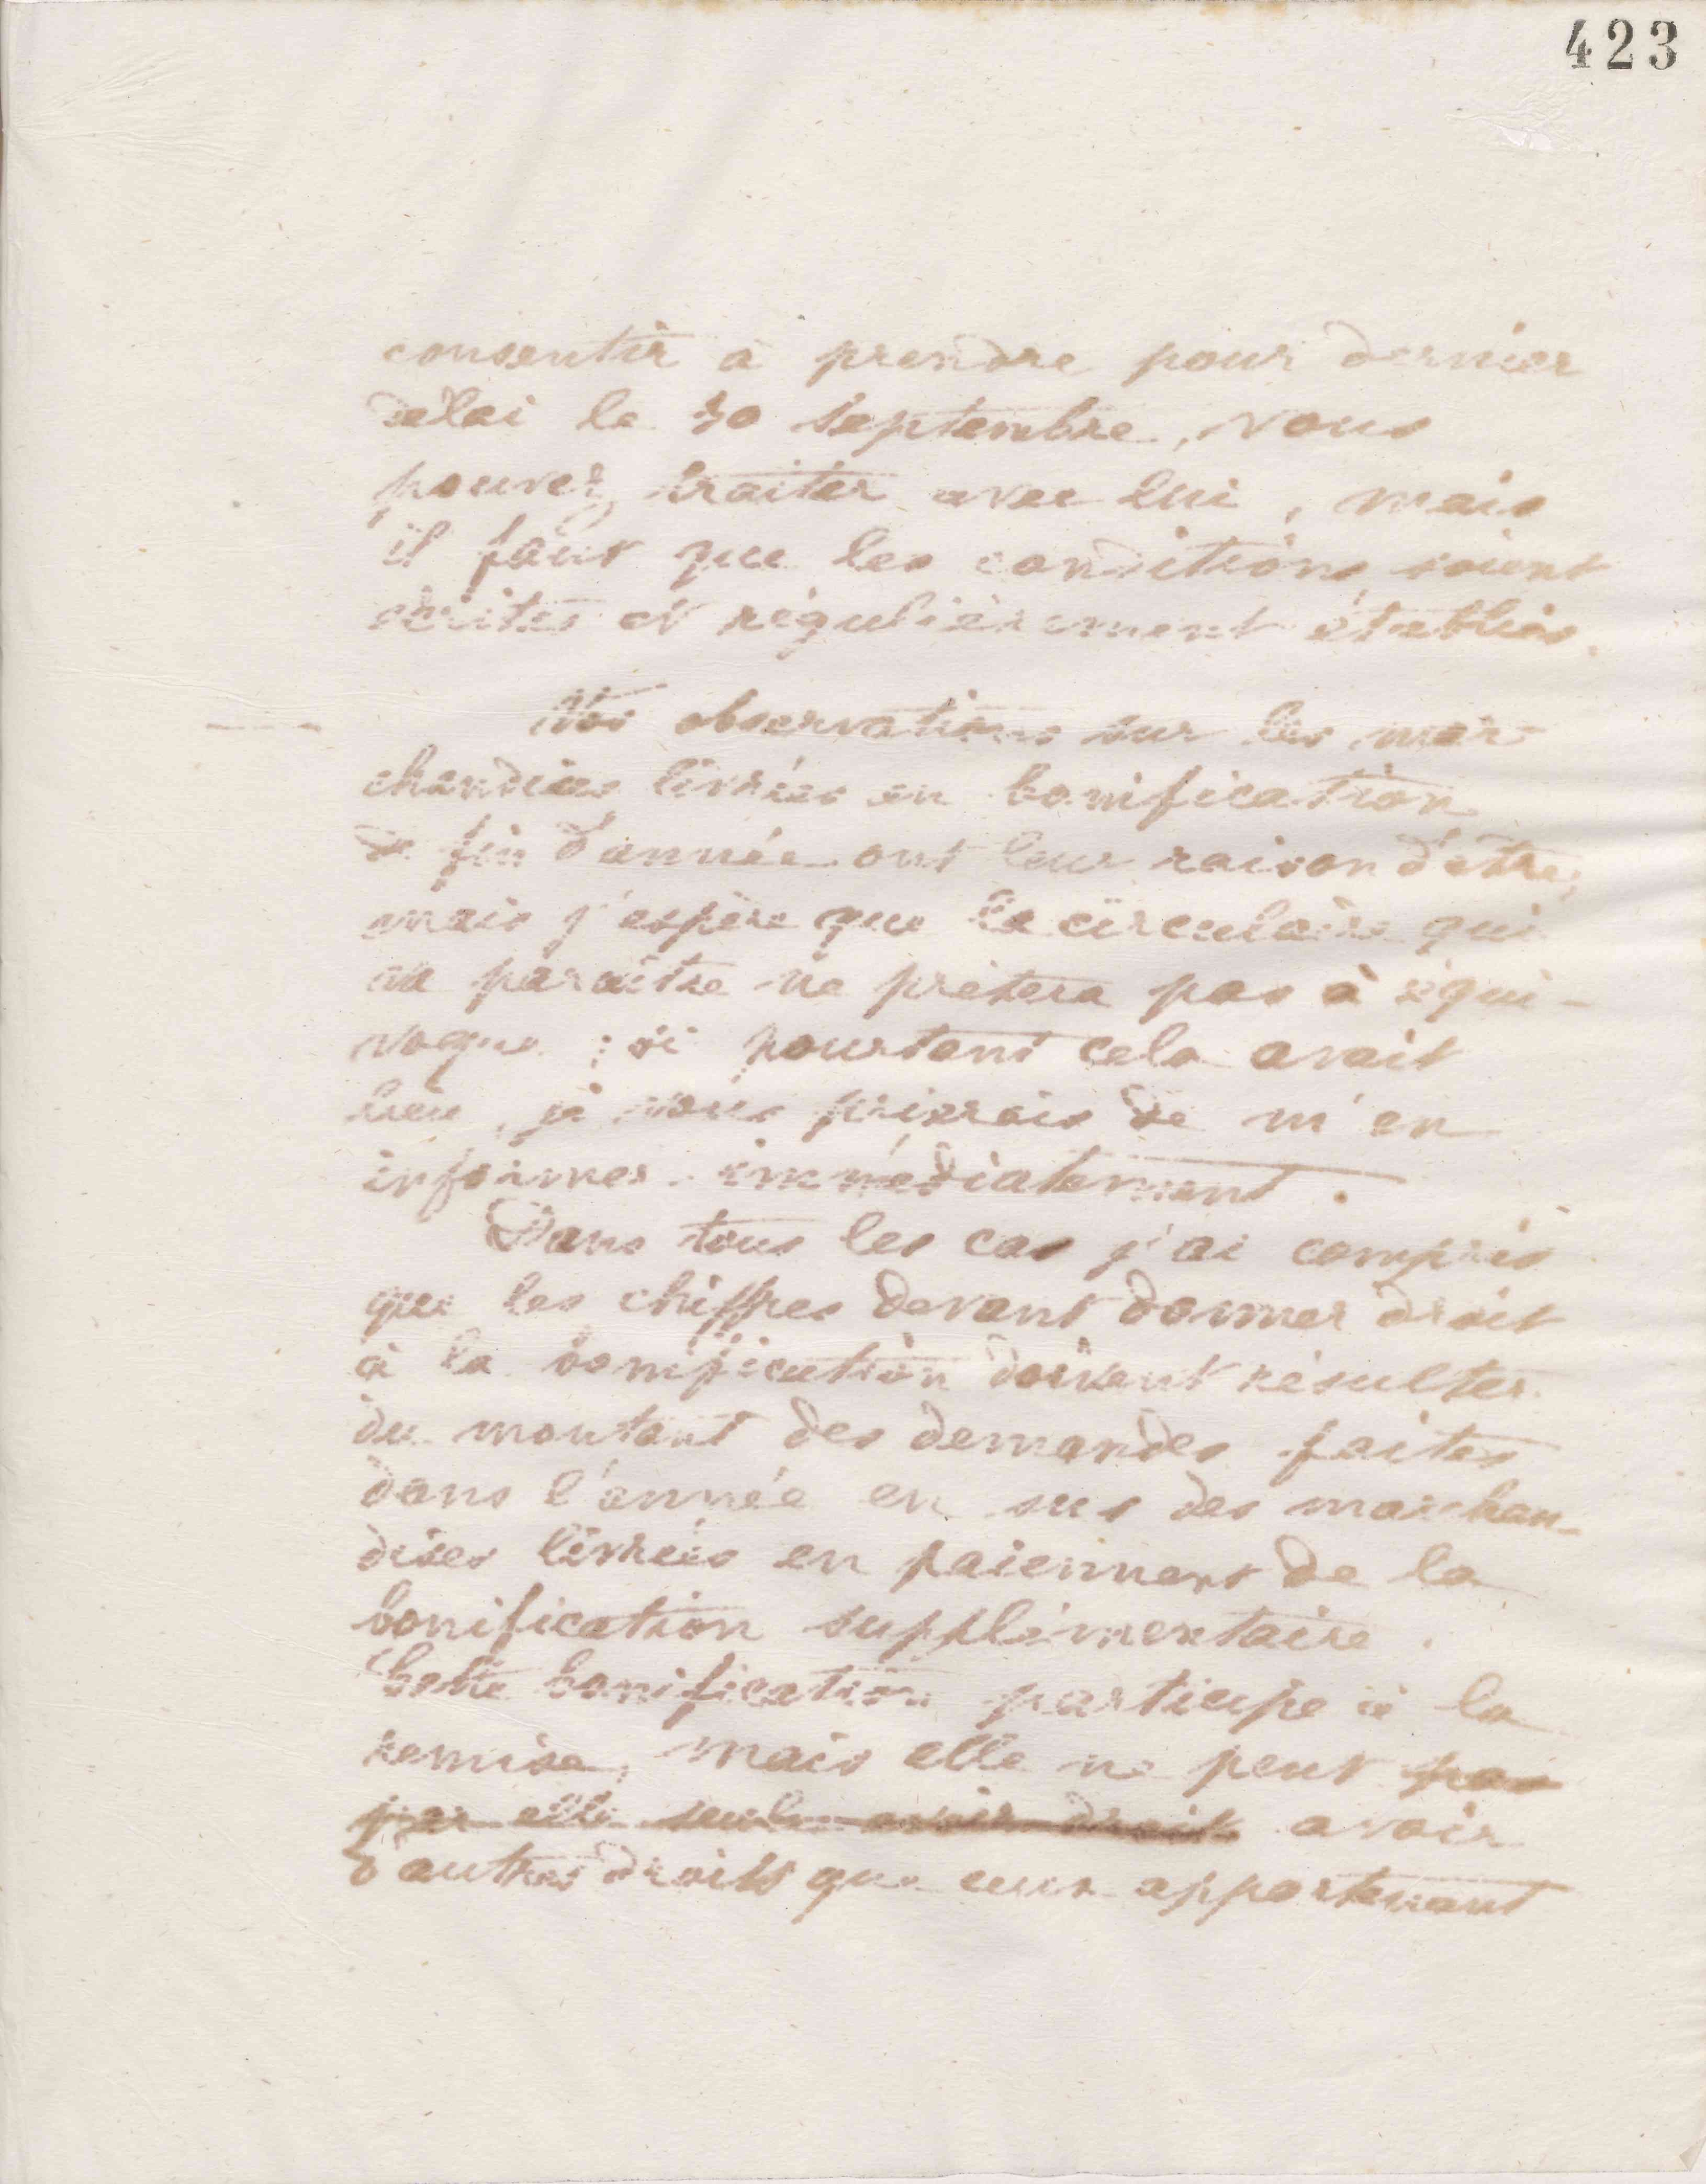 423
consentir à prendre pour dernier
délai le 30 septembre, vous
pouvez traiter avec lui, mais
il faut que les conditions soient
écrites et régulièrement établies.
Vos observations sur les mar-
chandises livrées en bonification
de fin d'année ont leur raison d'être;
mais j'espère que la circulaire qui
va paraître ne prêtera pas à équi-
voque ; si pourtant cela avait
lieu, je vous prierais de m'en
informer immédiatement.
Dans tous les cas j'ai compris
que les chiffres devant donner droit
à la bonification doivent résulter
du montant des demandes faites
dans l'année en sus des marchan-
dises livrées en paiement de la
bonification supplémentaire.
Cette bonification participe à la
remise, mais elle ne peut pas
par elle seule avoir droit avoir
d'autres droits que ceux appartenant